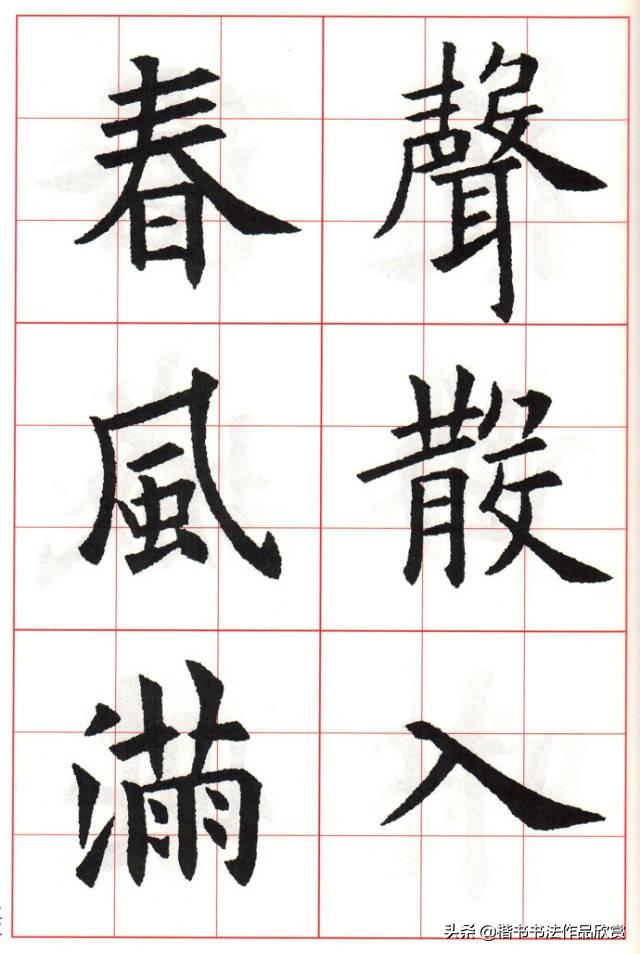 聲散入
春風滿
头条 @楷书书法作品欣赏